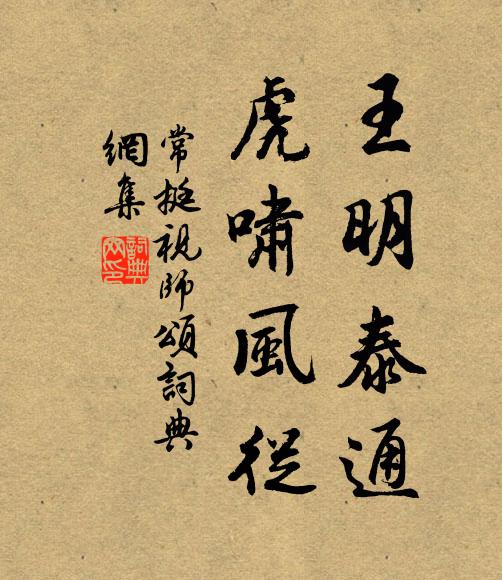 王明泰通
虎嘯風從
常挺視師頌詞典
網集
詞典網印